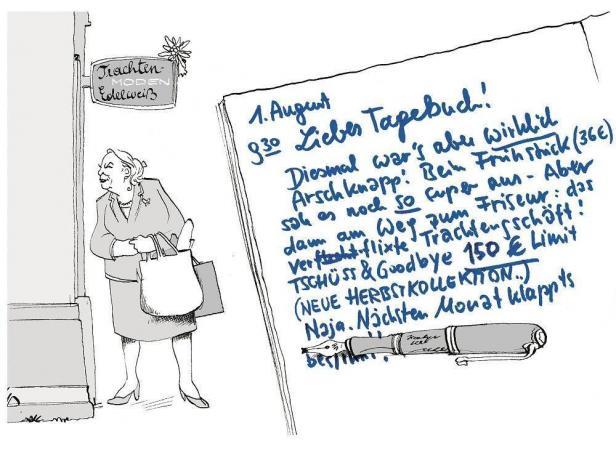 Trachten-
MODEN
Edelweiß
1. August
9³⁰ Liebes Tagebuch!
Diesmal war's aber wirklich
Arschknapp! Beim Frühstück (36€)
sah es noch so super aus - Aber
dann am Weg zum Friseur: das
verflixte Trachtengschäft!
TSCHÜSS & Goodbye 150 € Limit
(NEUE HERBSTKOLLEKTION..)
Naja. Nächsten Monat klappts